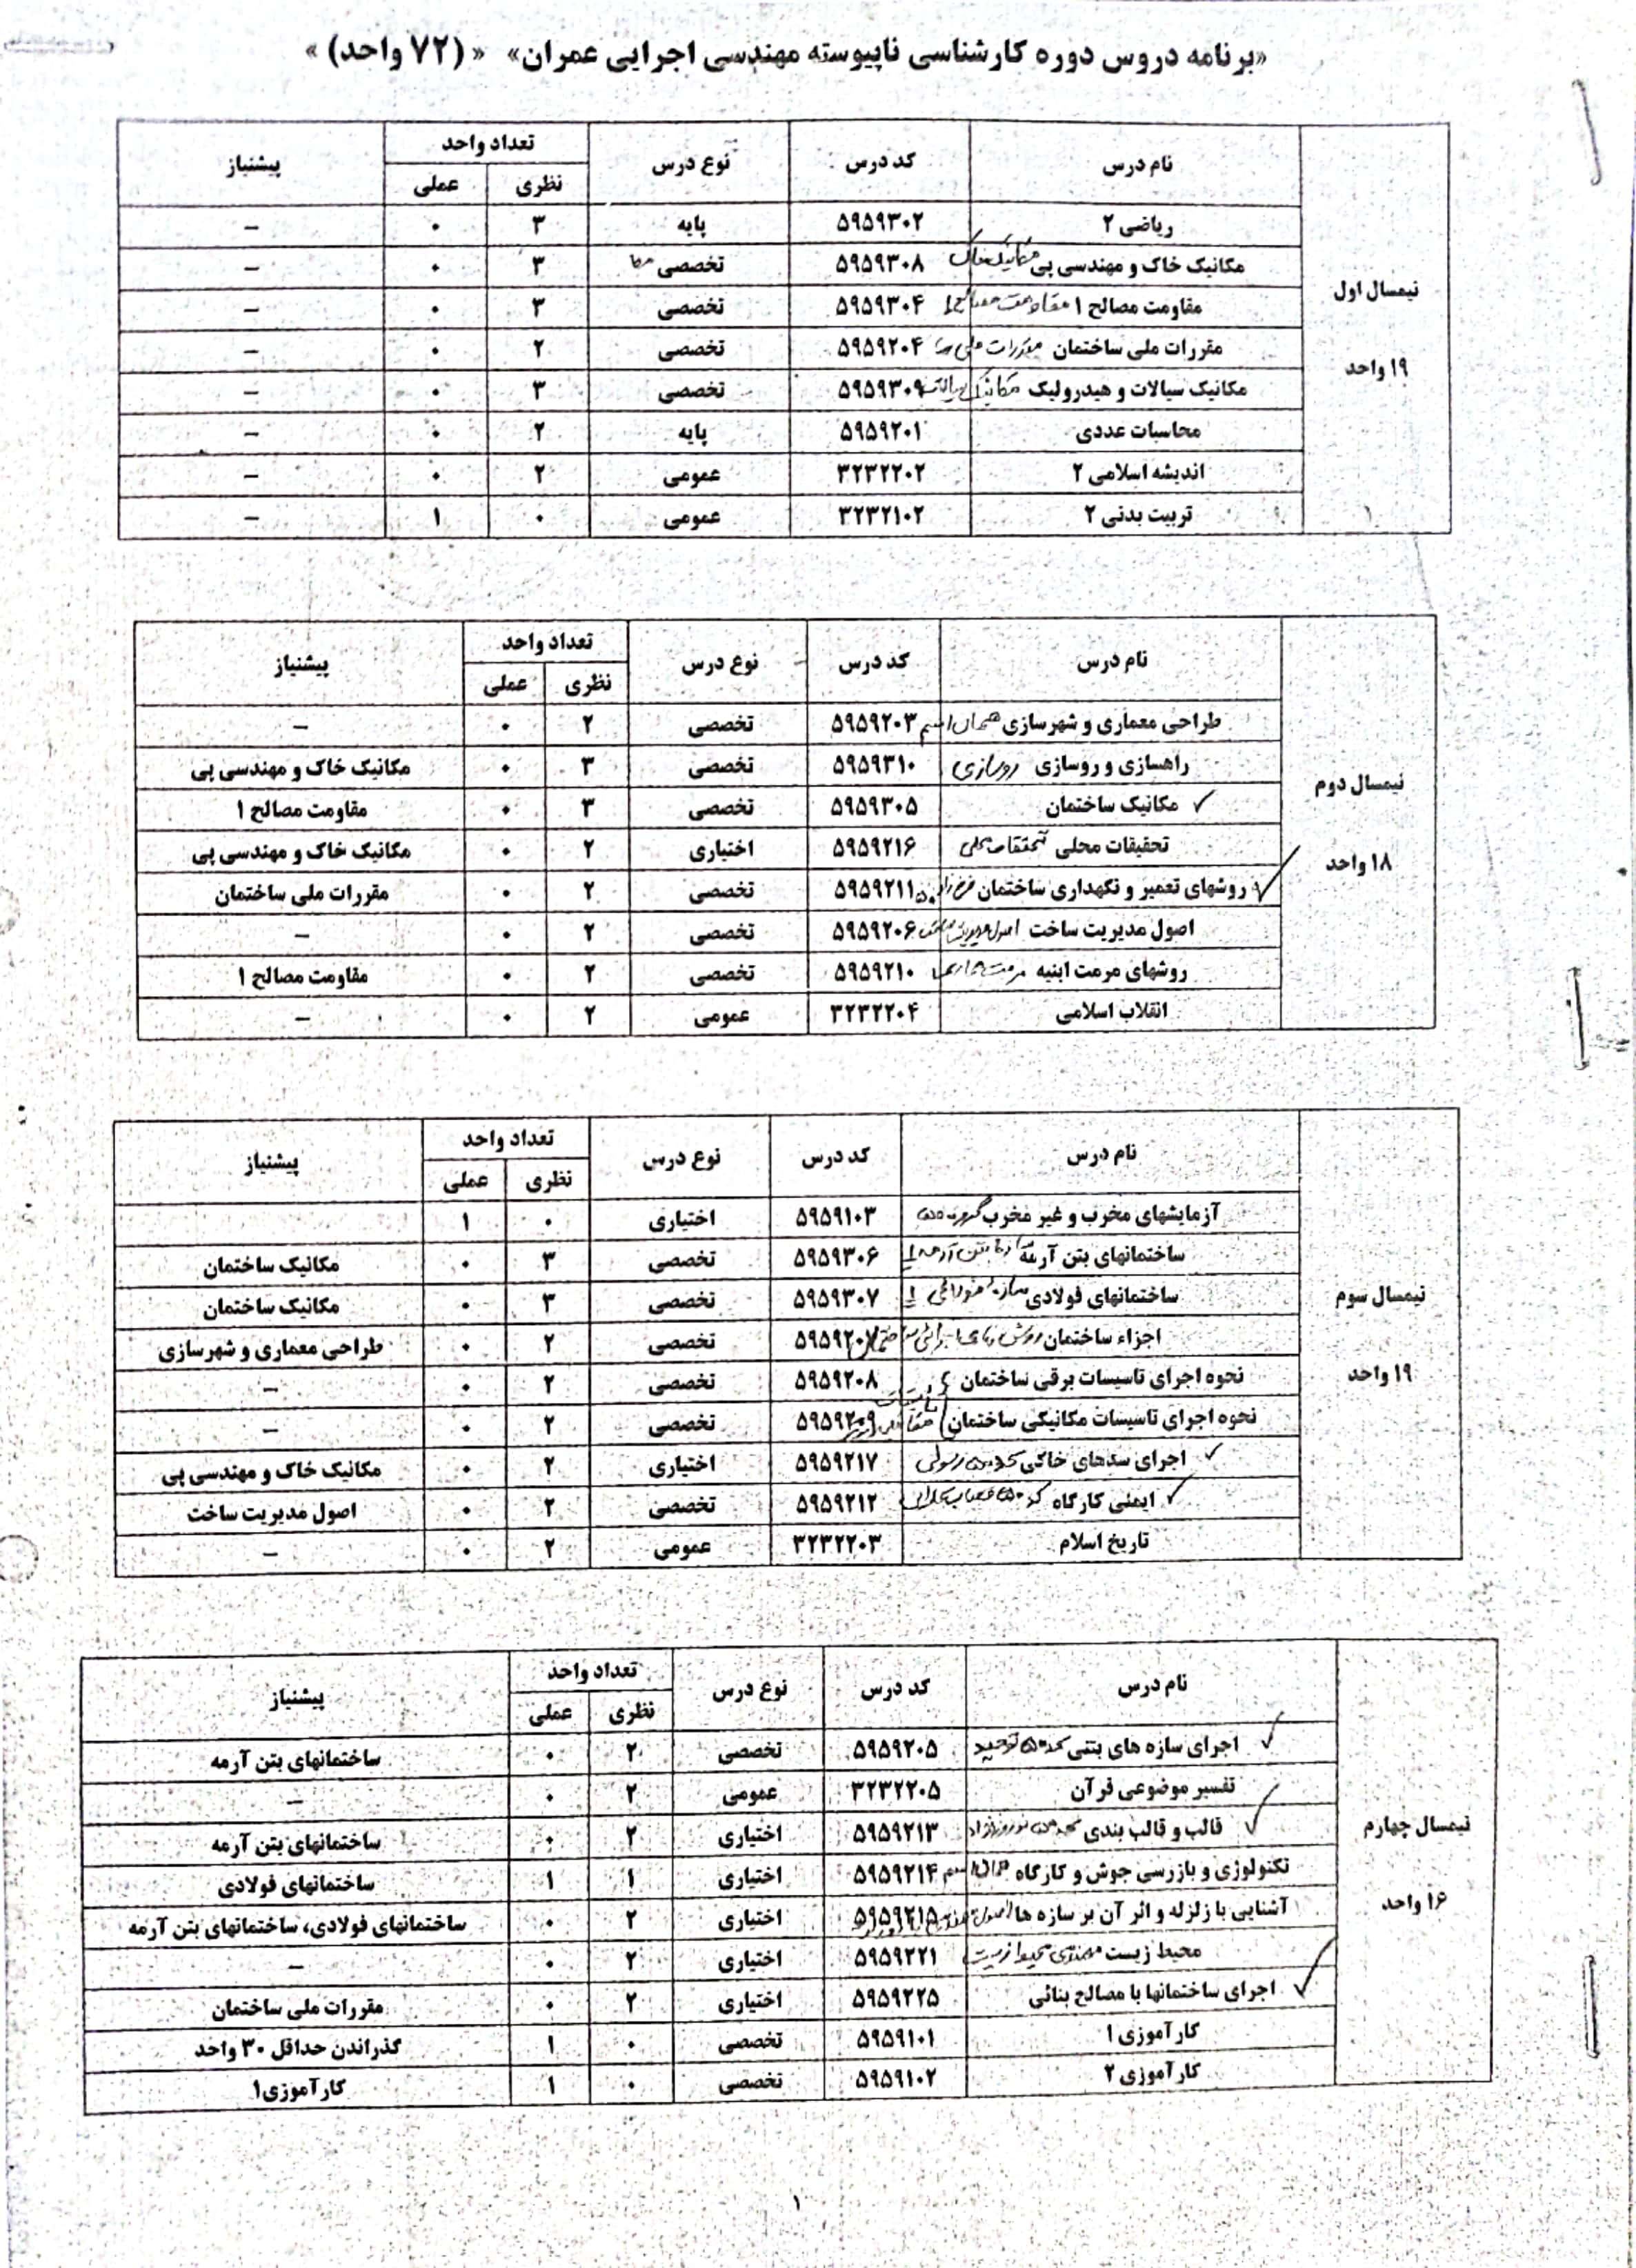 «برنامه دروس دوره کارشناسی ناپیوسته مهندسی اجرایی عمران» « (۷۲ واحد) »
نام درس کد درس نوع درس تعداد واحد پیشنیاز
نظری عملی
نیمسال اول
۱۹ واحد
ریاضی ۲ ۵۹۵۹۳۰۲ پایه ۳ ۰ –
مکانیک خاک و مهندسی پی مکانیک خاک ۵۹۵۹۳۰۸ تخصصی ۳ ۰ –
مقاومت مصالح ۱ مقاومت مصالح ۱ ۵۹۵۹۳۰۴ تخصصی ۳ ۰ –
مقررات ملی ساختمان مقررات ملی ۵۹۵۹۲۰۴ تخصصی ۲ ۰ –
مکانیک سیالات و هیدرولیک مکانیک سیالات ۵۹۵۹۳۰۹ تخصصی ۳ ۰ –
محاسبات عددی ۵۹۵۹۲۰۱ پایه ۲ ۰ –
اندیشه اسلامی ۲ ۳۲۳۲۲۰۲ عمومی ۲ ۰ –
تربیت بدنی ۲ ۳۲۳۲۱۰۲ عمومی ۰ ۱ –
نام درس کد درس نوع درس تعداد واحد پیشنیاز
نظری عملی
نیمسال دوم
۱۸ واحد
طراحی معماری و شهرسازی همان اسم ۵۹۵۹۲۰۳ تخصصی ۲ ۰ –
راهسازی و روسازی روسازی ۵۹۵۹۳۱۰ تخصصی ۳ ۰ مکانیک خاک و مهندسی پی
✓ مکانیک ساختمان ۵۹۵۹۳۰۵ تخصصی ۳ ۰ مقاومت مصالح ۱
تحقیقات محلی تحقیقات محلی ۵۹۵۹۲۱۶ اختیاری ۲ ۰ مکانیک خاک و مهندسی پی
✓ روشهای تعمیر و نگهداری ساختمان ۵۹۵۹۲۱۱ تخصصی ۲ ۰ مقررات ملی ساختمان
اصول مدیریت ساخت اصول مدیریت ساخت ۵۹۵۹۲۰۶ تخصصی ۲ ۰ –
روشهای مرمت ابنیه ۵۹۵۹۲۱۰ تخصصی ۲ ۰ مقاومت مصالح ۱
انقلاب اسلامی ۳۲۳۲۲۰۴ عمومی ۲ ۰ –
نام درس کد درس نوع درس تعداد واحد پیشنیاز
نظری عملی
نیمسال سوم
۱۹ واحد
آزمایشهای مخرب و غیر مخرب ۵۹۵۹۱۰۳ اختیاری ۰ ۱
ساختمانهای بتن آرمه ۵۹۵۹۳۰۶ تخصصی ۳ ۰ مکانیک ساختمان
ساختمانهای فولادی سازه فولادی ۱ ۵۹۵۹۳۰۷ تخصصی ۳ ۰ مکانیک ساختمان
اجزاء ساختمان ۵۹۵۹۲۰۷ تخصصی ۲ ۰ طراحی معماری و شهرسازی
نحوه اجرای تاسیسات برقی ساختمان ۵۹۵۹۲۰۸ تخصصی ۲ ۰ –
نحوه اجرای تاسیسات مکانیکی ساختمان ۵۹۵۹۲۰۹ تخصصی ۲ ۰ –
✓ اجرای سدهای خاکی ۵۹۵۹۲۱۷ اختیاری ۲ ۰ مکانیک خاک و مهندسی پی
✓ ایمنی کارگاه ۵۹۵۹۲۱۲ تخصصی ۲ ۰ اصول مدیریت ساخت
تاریخ اسلام ۳۲۳۲۲۰۳ عمومی ۲ ۰ –
نام درس کد درس نوع درس تعداد واحد پیشنیاز
نظری عملی
نیمسال چهارم
۱۶ واحد
✓ اجرای سازه های بتنی ۵۹۵۹۲۰۵ تخصصی ۲ ۰ ساختمانهای بتن آرمه
تفسیر موضوعی قرآن ۳۲۳۲۲۰۵ عمومی ۲ ۰ –
✓ قالب و قالب بندی ۵۹۵۹۲۱۳ اختیاری ۲ ۰ ساختمانهای بتن آرمه
تکنولوژی و بازرسی جوش و کارگاه همان اسم ۵۹۵۹۲۱۴ اختیاری ۱ ۱ ساختمانهای فولادی
آشنایی با زلزله و اثر آن بر سازه ها ۵۹۵۹۲۱۵ اختیاری ۲ ۰ ساختمانهای فولادی، ساختمانهای بتن آرمه
محیط زیست مهندسی محیط زیست ۵۹۵۹۲۲۱ اختیاری ۲ ۰ –
✓ اجرای ساختمانها با مصالح بنائی ۵۹۵۹۲۲۵ اختیاری ۲ ۰ مقررات ملی ساختمان
کارآموزی ۱ ۵۹۵۹۱۰۱ تخصصی ۰ ۱ گذراندن حداقل ۳۰ واحد
کارآموزی ۲ ۵۹۵۹۱۰۲ تخصصی ۰ ۱ کارآموزی۱
۱